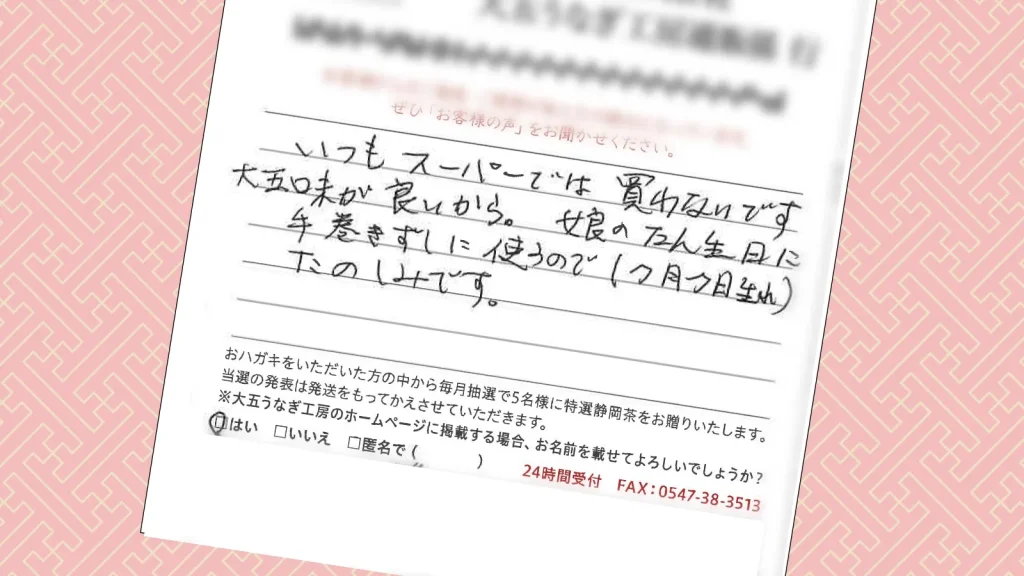 大五うなぎ工房通販係 行
ぜひ「お客様の声」をお聞かせください。
いつも スーパーでは 買わないです
大五味が 良いから。 娘の たん生日に
手巻きずしに 使うので (7月7日生れ)
たのしみです。
おハガキをいただいた方の中から毎月抽選で5名様に特選静岡茶をお贈りいたします。
当選の発表は発送をもってかえさせていただきます。
※大五うなぎ工房のホームページに掲載する場合、お名前を載せてよろしいでしょうか?
□はい □いいえ □匿名で( )
24時間受付 FAX:0547-38-3513